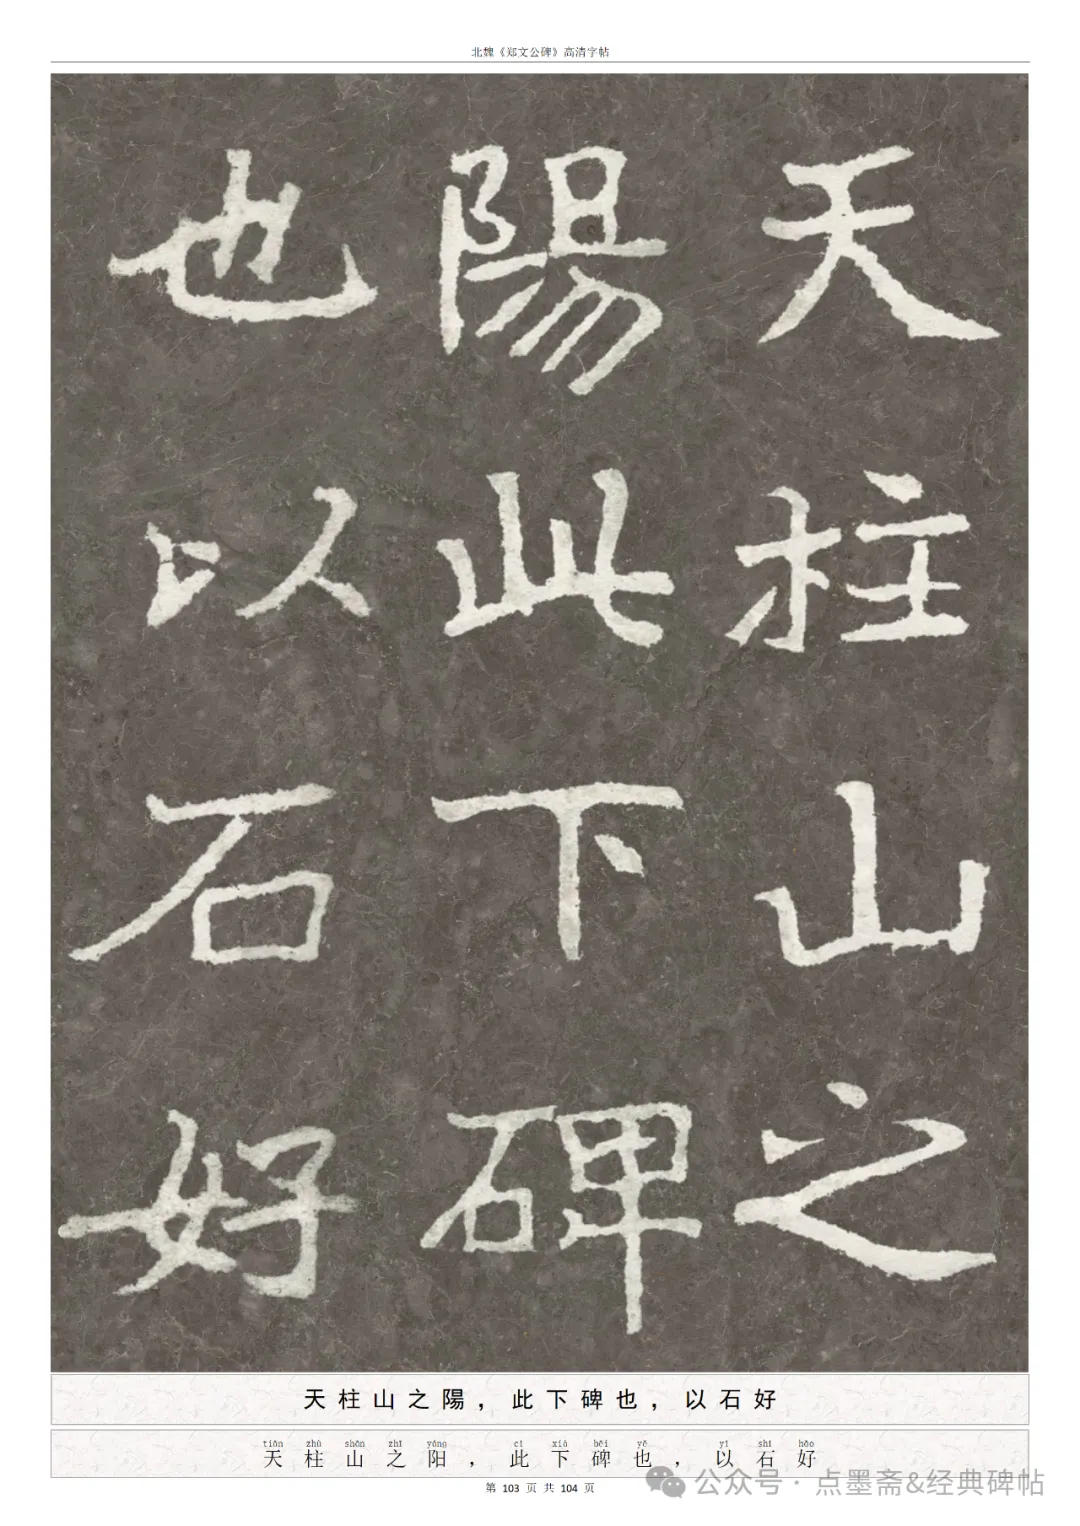 北魏《郑文公碑》高清字帖
天柱山之
陽此下碑
也以石好
天柱山之陽，此下碑也，以石好
tiān zhù shān zhī yáng cǐ xià bēi yě yǐ shí hǎo
天柱山之阳，此下碑也，以石好
第 103 页 共 104 页
公众号 · 点墨斋&经典碑帖